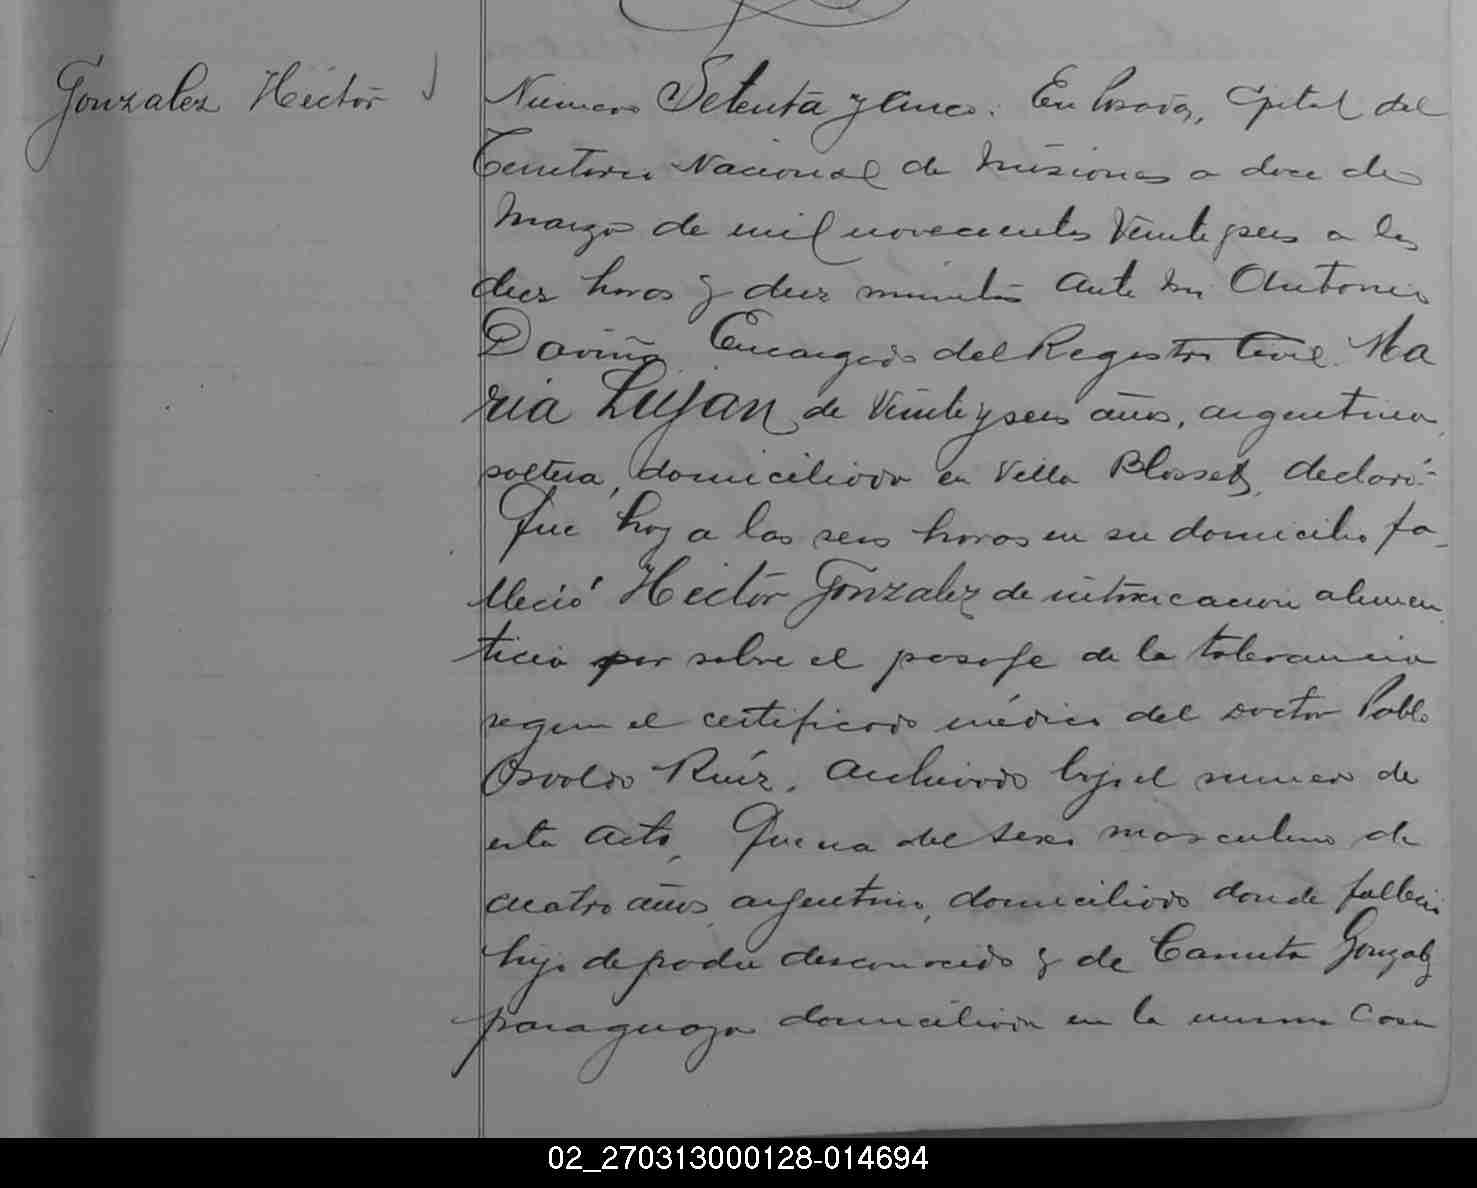 Gonzalez Hector
Numero Setenta y cinco. En Posadas, Capital del
Territorio Nacional de Misiones a doce de
Marzo de mil novecientos Veinte y seis a las
diez horas y diez minutos Ante mi Antonio
Daviña Encargado del Registro Civil. Ma
ria Lujan de Veinte y seis años, argentina,
soltera, domiciliada en Villa Blosset, declaró:
Que hoy a las seis horas en su domicilio fa-
lleció Hector Gonzalez de intoxicacion alimen
ticia por sobre el pasage de la tolerancia
segun el certificado médico del Doctor Pablo
Osvaldo Ruíz, Archivado bajo el numero de
esta Acta, Que era del sexo masculino de
cuatro años, argentino, domiciliado donde falleció
hijo de padre desconocido y de Canuta Gonzalez
paraguaya domiciliada en la misma casa
02_270313000128-014694